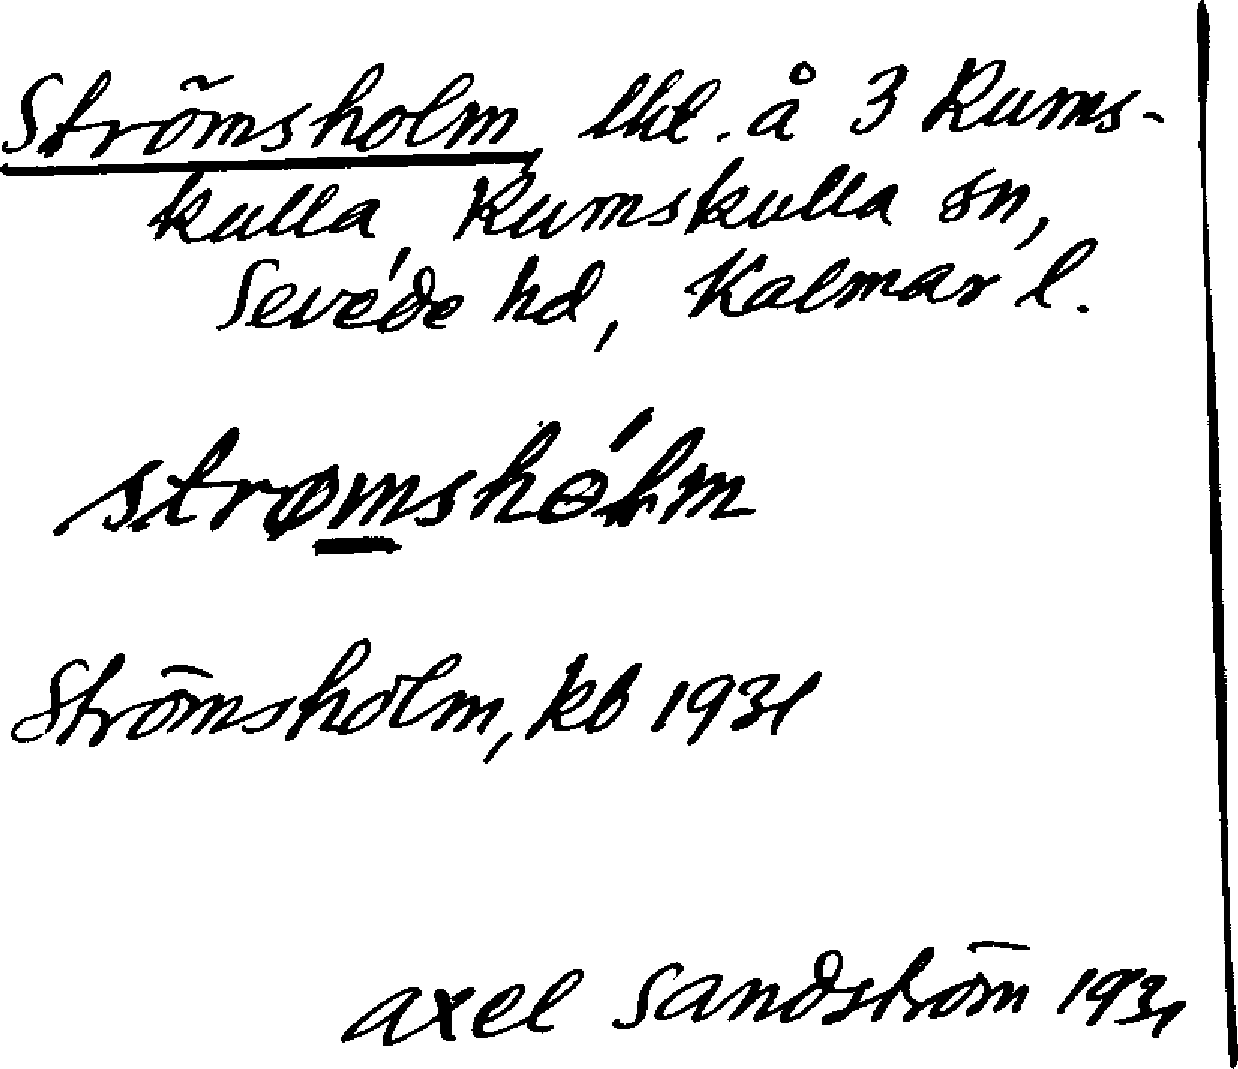 Strömsholm, lht. å 3 Rums-
kulla, Rumskulla sn,
Sevede hd, Kalmar l.
strømshólm
Strömsholm, kb 1931
Axel Sandström 1931